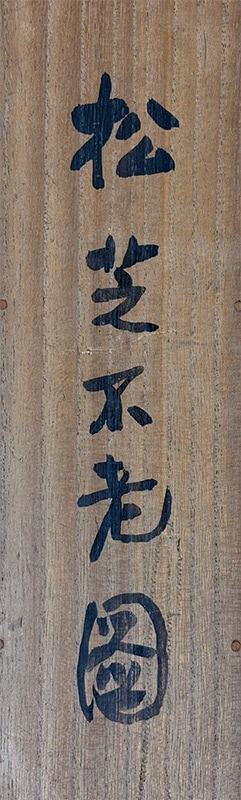 松芝不老圖